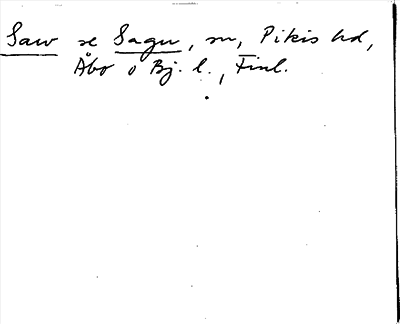 Saw se Sagu, sn, Pikis hd,
Åbo o Bj. l., Finl.